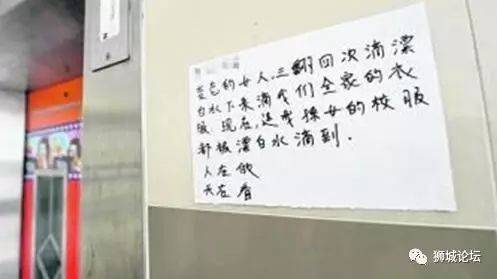 的女人,三翻四次滴漂
白水下来滴我们全家的衣
服.现在,连我孫女的校服
都被漂白水滴到.
人在做
天在看
狮城论坛